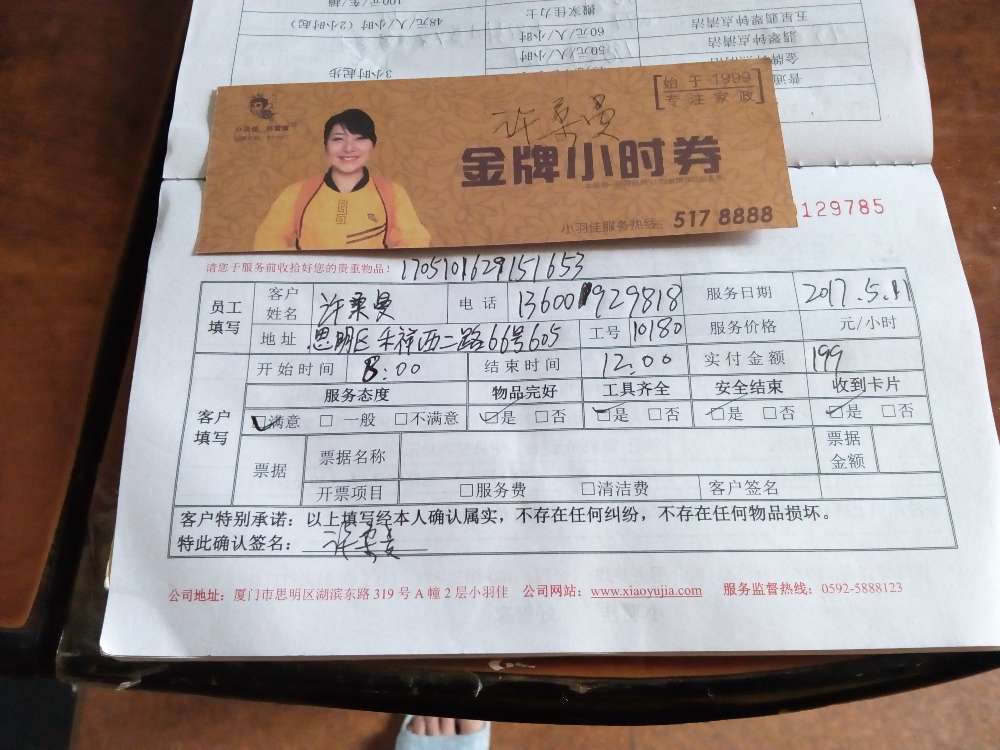 100元/车/趟
48元/人/小时（2小时起）
搬家佳力士
60元/人/小时
50元/人/小时
五星翡翠钟点清洁
翡翠钟点清洁
3小时起步
始于1999
专注家政
许柔曼
金牌小时券
小羽佳服务热线：517 8888
129785
请您于服务前收拾好您的贵重物品！ 1705101629151653
员工填写 客户姓名 许柔曼 电话 13600929818 服务日期 2017.5.11
地址 思明区禾祥西二路66号605 工号 10180 服务价格 元/小时
客户填写 开始时间 8:00 结束时间 12:00 实付金额 199
服务态度 物品完好 工具齐全 安全结束 收到卡片
☑满意 □一般 □不满意 ☑是 □否 ☑是 □否 ☑是 □否 ☑是 □否
票据 票据名称 票据金额
开票项目 □服务费 □清洁费 客户签名
客户特别承诺：以上填写经本人确认属实，不存在任何纠纷，不存在任何物品损坏。
特此确认签名：许柔曼
公司地址：厦门市思明区湖滨东路 319 号 A 幢 2 层小羽佳 公司网站：www.xiaoyujia.com 服务监督热线：0592-5888123